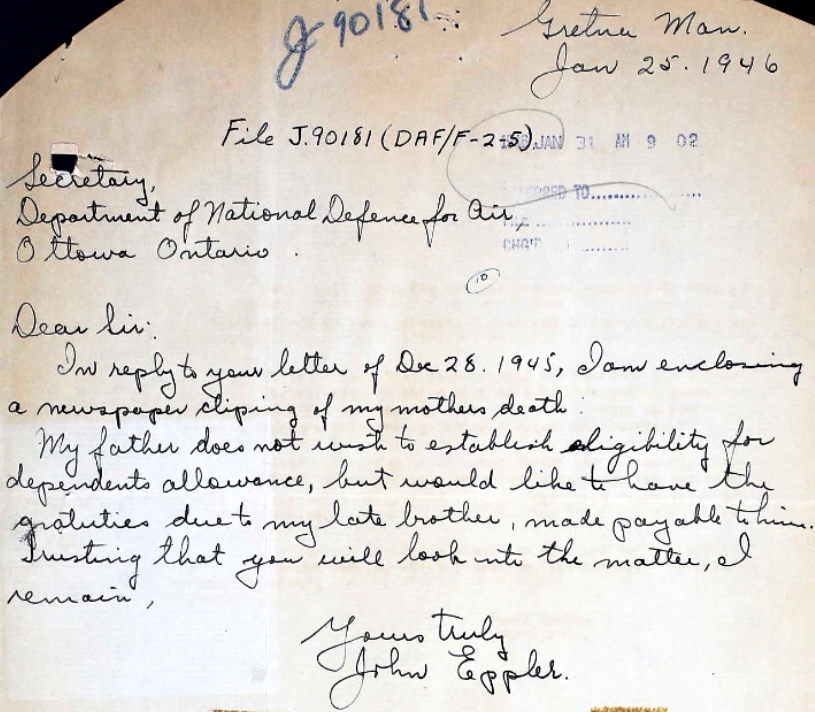 J 90181
Gretna Man.
Jan 25. 1946
File J.90181 (DAF/F-2-5).
JAN 31 AM 9 02
TO
Secretary,
Department of National Defence for Air,
Ottowa Ontario.
10
Dear Sir:
In reply to your letter of Dec 28. 1945, I am enclosing
a newspaper cliping of my mothers death.
My father does not wish to establish eligibility for
dependents allowance, but would like to have the
gratuties due to my late brother, made payable to him.
Trusting that you will look into the matter, I
remain,
Yours truly
John Eppler.